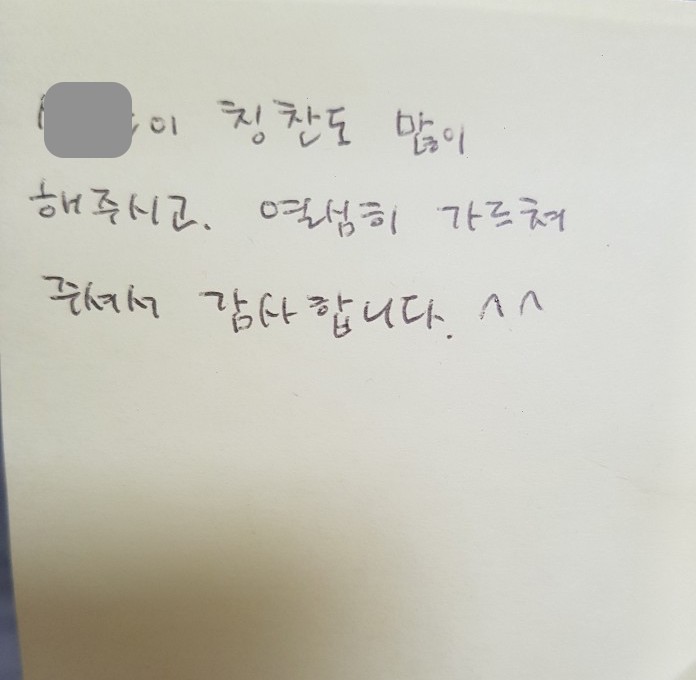 이 칭찬도 많이
해주시고. 열심히 가르쳐
주셔서 감사합니다. ^^